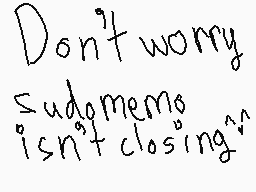 Don't worry
sudomemo
isn't closing^^